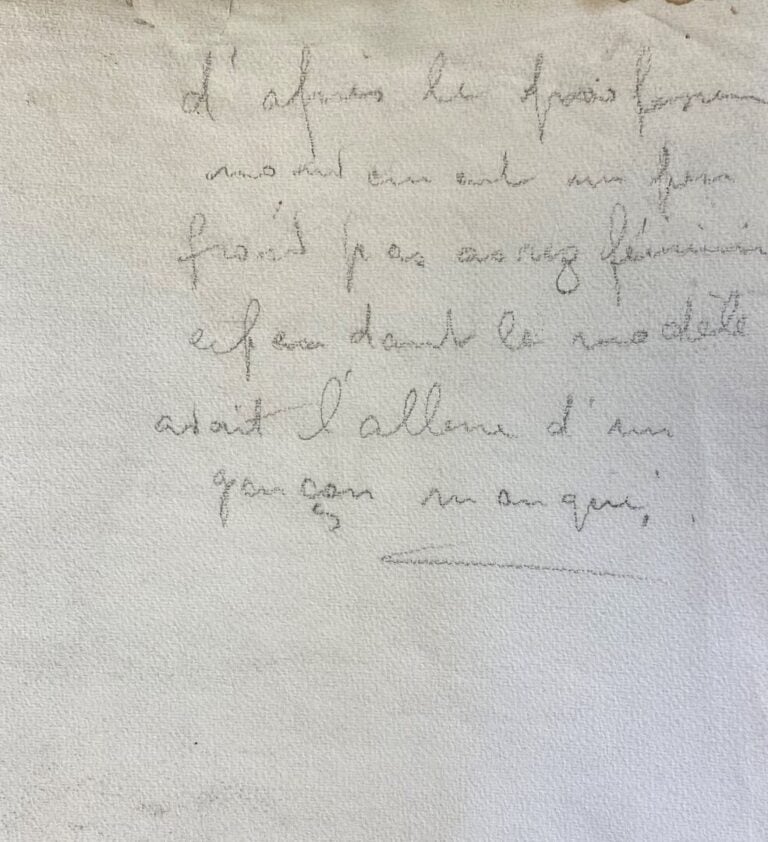 d'après le professeur
mouvement un peu
froid pas assez féminin
cependant le modèle
avait l'allure d'un
garçon manqué,